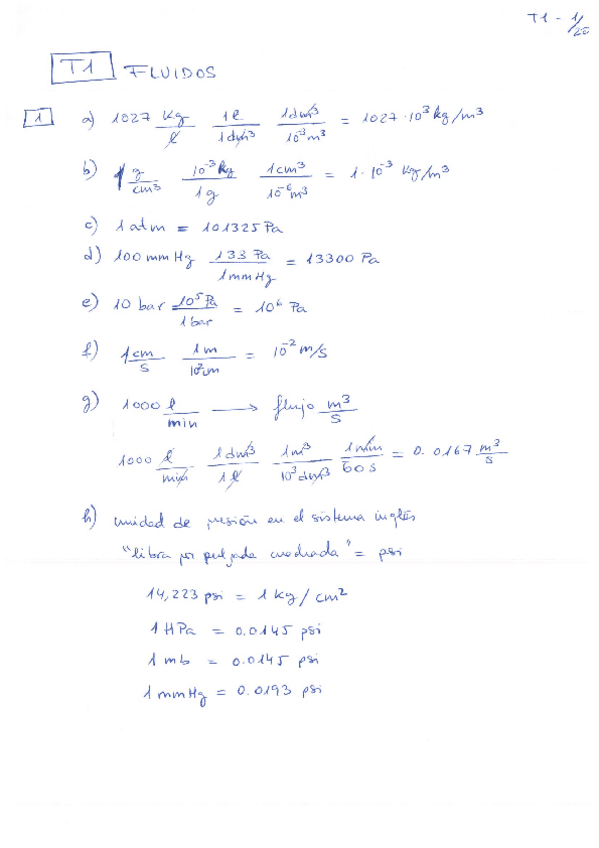 T1 - 1/20
T1 FLUIDOS
1 a) 1027 kg/l 1l/1dm³ 1dm³/10⁻³m³ = 1027·10³ kg/m³
b) 1 g/cm³ 10⁻³kg/1g 1cm³/10⁻⁶m³ = 1·10⁻³ kg/m³
c) 1 atm = 101325 Pa
d) 100 mmHg 133 Pa/1mmHg = 13300 Pa
e) 10 bar 10⁵Pa/1bar = 10⁶ Pa
f) 1cm/s 1m/10²cm = 10⁻² m/s
g) 1000 l/min → flujo m³/s
1000 l/min 1dm³/1l 1m³/10³dm³ 1min/60s = 0.0167 m³/s
h) unidad de presión en el sistema inglés
"libra por pulgada cuadrada" = psi
14,223 psi = 1 kg/cm²
1 HPa = 0.0145 psi
1 mb = 0.0145 psi
1 mmHg = 0.0193 psi